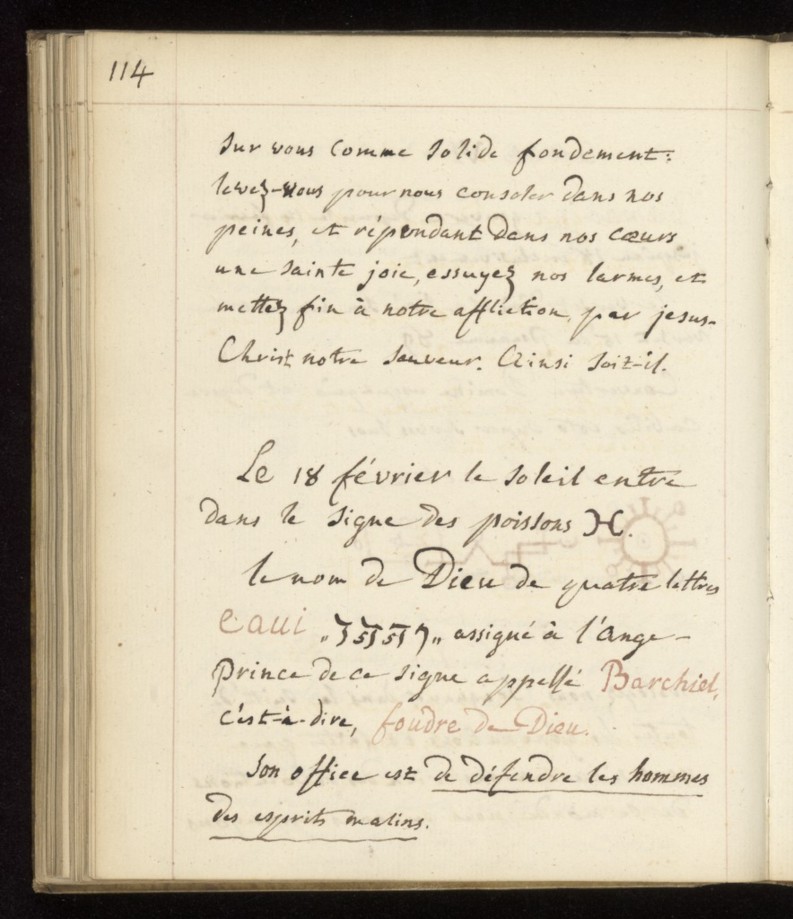 114
Sur vous comme solide fondement:
levez-vous pour nous consoler dans nos
peines, et répondant dans nos cœurs
une sainte joie, essuyez nos larmes, et
mettez fin à notre affliction, par jesus-
Christ notre sauveur. Ainsi soit-il.
Le 18 février le soleil entre
dans le signe des poissons ♓.
le nom de Dieu de quatre lettres
eaui „ „ assigné à l'ange-
prince de ce signe appellé Barchiel,
c'est-à-dire, foudre de Dieu.
son office est de défendre les hommes
des esprits malins.